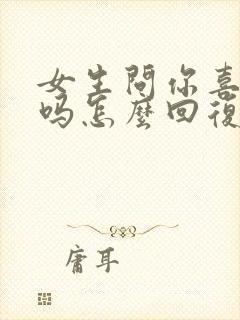 女生問你喜
吗怎麼回復
庸耳